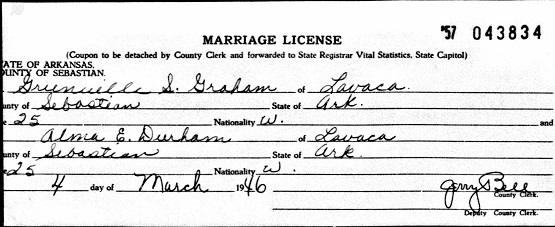 '57 043834
MARRIAGE LICENSE
(Coupon to be detached by County Clerk and forwarded to State Registrar Vital Statistics, State Capitol)
ATE OF ARKANSAS,
OUNTY OF SEBASTIAN.
S. Graham of Lavaca.
unty of Sebastian State of Ark.
e 25 Nationality W. and
Alma E. Durham of Lavaca
unty of Sebastian State of Ark.
e 25 Nationality W.
4 day of March 1946 Jerry Bell
County Clerk.
Deputy County Clerk.